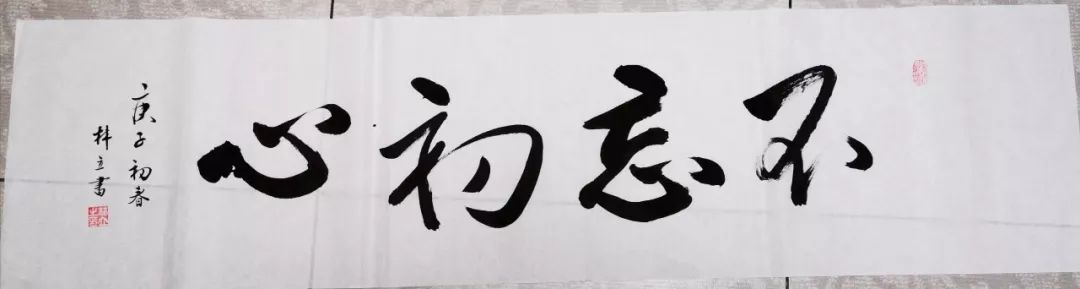 不忘初心
庚子初春
林立書